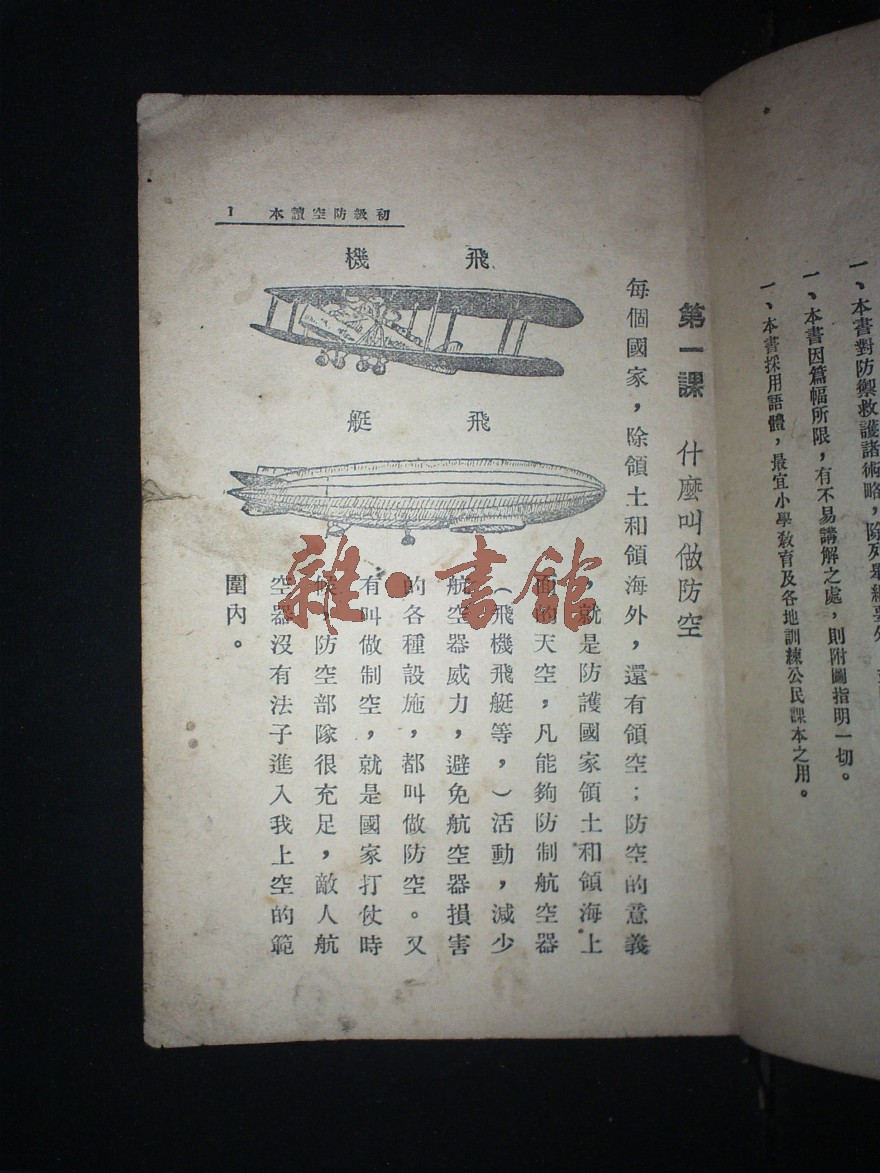 一、本書對防禦救護諸術略，除列舉綱要外，
一、本書因篇幅所限，有不易講解之處，則附圖指明一切。
一、本書採用語體，最宜小學教育及各地訓練公民課本之用。
初級防空讀本 1
第一課 什麼叫做防空
每個國家，除領土和領海外，還有領空；防空的意義
，就是防護國家領土和領海上
面的天空，凡能夠防制航空器
（飛機飛艇等，）活動，減少
航空器威力，避免航空器損害
的各種設施，都叫做防空。又
有叫做制空，就是國家打仗時
候，防空部隊很充足，敵人航
空器沒有法子進入我上空的範
圍內。
飛機
飛艇
雜·書館